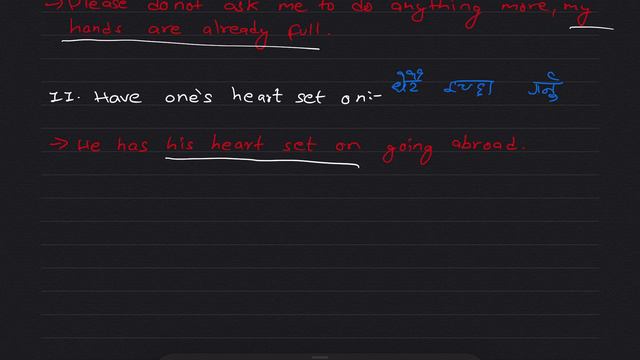 → Please do not ask me to do anything more, my
hands are already full.
II. Have one's heart set on:- इच्छा गर्नु
→ He has his heart set on going abroad.